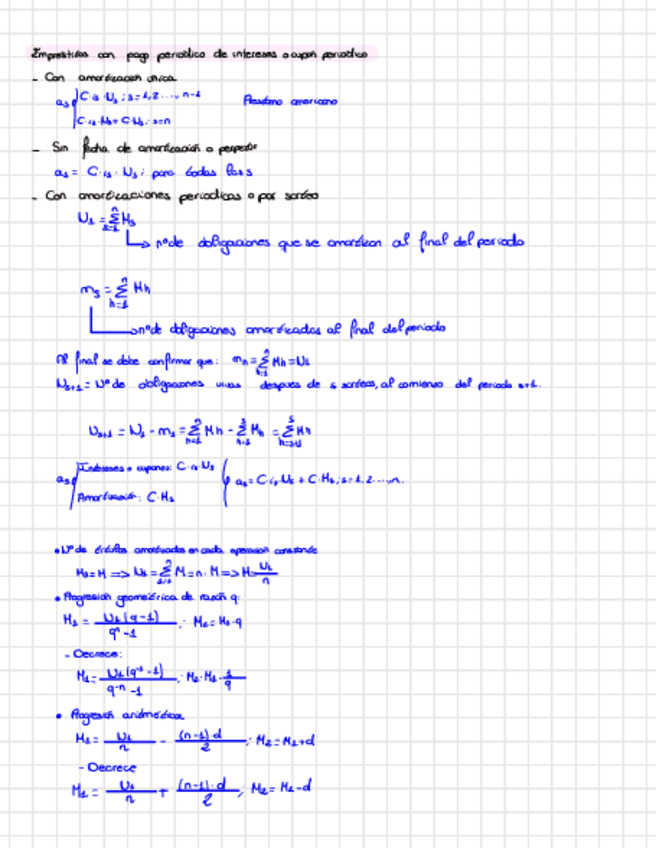 Emprestitos con pago periodico de intereses o cupon periodico
- Con amortizacion unica
as { C·is·Us ; s=1,2...., n-1    Prestamo americano
C·is·Us+C·Us ; s=n
- Sin fecha de amortización o perpetuo
as = C·is·Us ; para todas las s
- Con amortizaciones periodicas o por sorteo
U1 = Σ Ms
↳ nº de obligaciones que se amortizan al final del periodo
ms = Σ Mh
nº de obligaciones amortizadas al final del periodo
Al final se debe confirmar que: mn = Σ Mh = U1
Us+1 = Nº de obligaciones vivas despues de s sorteos, al comienzo del periodo s+1.
Us+1 = U1 - ms = Σ Mh - Σ Mh = Σ Mh
as { Intereses o cupones: C·is·Us { as = C·is·Us + C·Ms ; s=1,2.....n.
Amortización: C·Ms
• Nº de amortizados en cada operacion constante
Ms=M => U1 = Σ M = n·M => M = U1/n
• Progresión geometrica de razón q:
M1 = U1(q-1)/qⁿ-1 ; M2 = M1·q
- Decrece:
M1 = U1(q⁻¹-1)/q⁻ⁿ-1 ; M2 = M1·1/q
• Progresión aritmetica
M1 = U1/n - (n-1)·d/2 ; M2 = M1+d
- Decrece
M1 = U1/n + (n-1)·d/2 ; M2 = M1-d